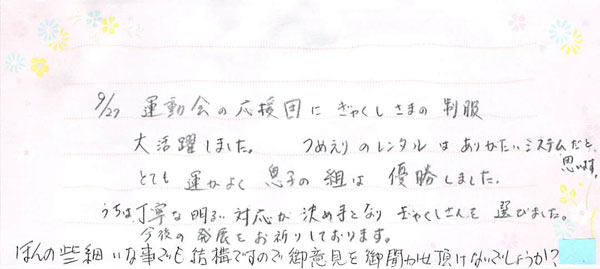 9/27 運動会の応援団に ぎゃくしさまの 制服
大活躍しました。 つめえりのレンタルは ありがたいシステムだと思います。
とても 運がよく 息子の 組は 優勝しました。
うちは丁寧な明るい対応が 決め手となり ぎゃくしさんを 選びました。
今後の 発展を お祈りしております。
ほんの些細いな事でも結構ですので御意見を御聞かせ頂けないでしょうか?